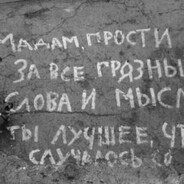 МАДАМ, ПРОСТИ
ЗА ВСЕ ГРЯЗНЫ
СЛОВА И МЫСЛ
ТЫ ЛУЧШЕЕ, ЧТ
СЛУЧАЛОСЬ СО